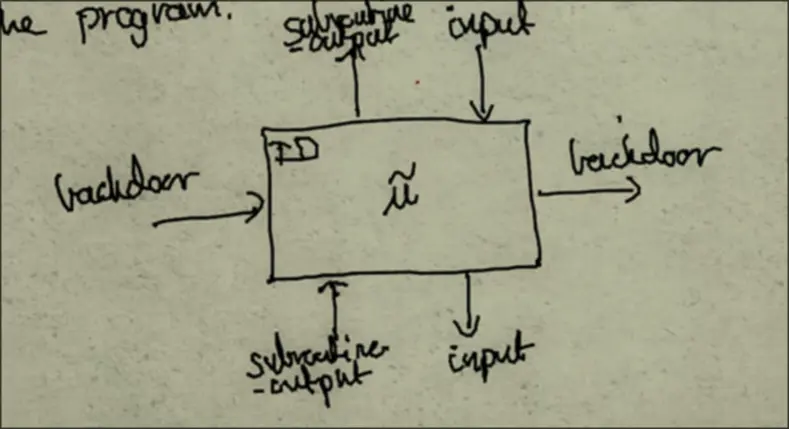 he program.
subroutine input
-output
ID
backdoor
ũ
backdoor
subroutine input
-output